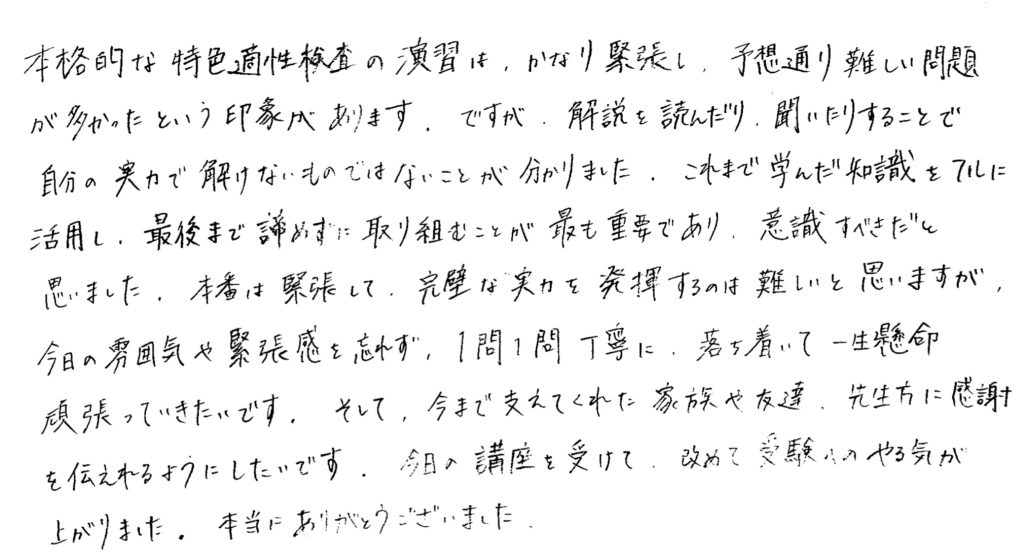 本格的な特色適性検査の演習は、かなり緊張し、予想通り難しい問題
が多かったという印象があります。ですが、解説を読んだり、聞いたりすることで
自分の実力で解けないものではないことが分かりました。これまで学んだ知識をフルに
活用し、最後まで諦めずに取り組むことが最も重要であり、意識すべきだと
思いました。本番は緊張して、完璧な実力を発揮するのは難しいと思いますが、
今日の雰囲気や緊張感を忘れず、1問1問丁寧に、落ち着いて一生懸命
頑張っていきたいです。そして、今まで支えてくれた家族や友達、先生方に感謝
を伝えれるようにしたいです。今日の講座を受けて、改めて受験へのやる気が
上がりました。本当にありがとうございました。